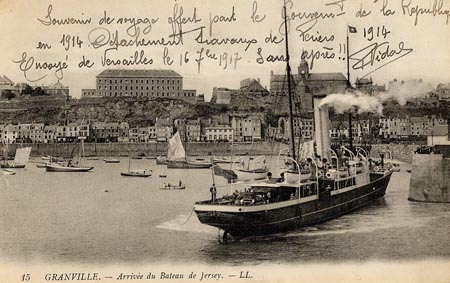 Souvenir de voyage offert part le Gouvernt de la Republiq
en 1914 Détachement Travaux de Thiers 1914
Envoyée de Versailles le 16 7bre 1917. 3 ans après !! Vidal
15 GRANVILLE. — Arrivée du Bateau de Jersey. — LL.